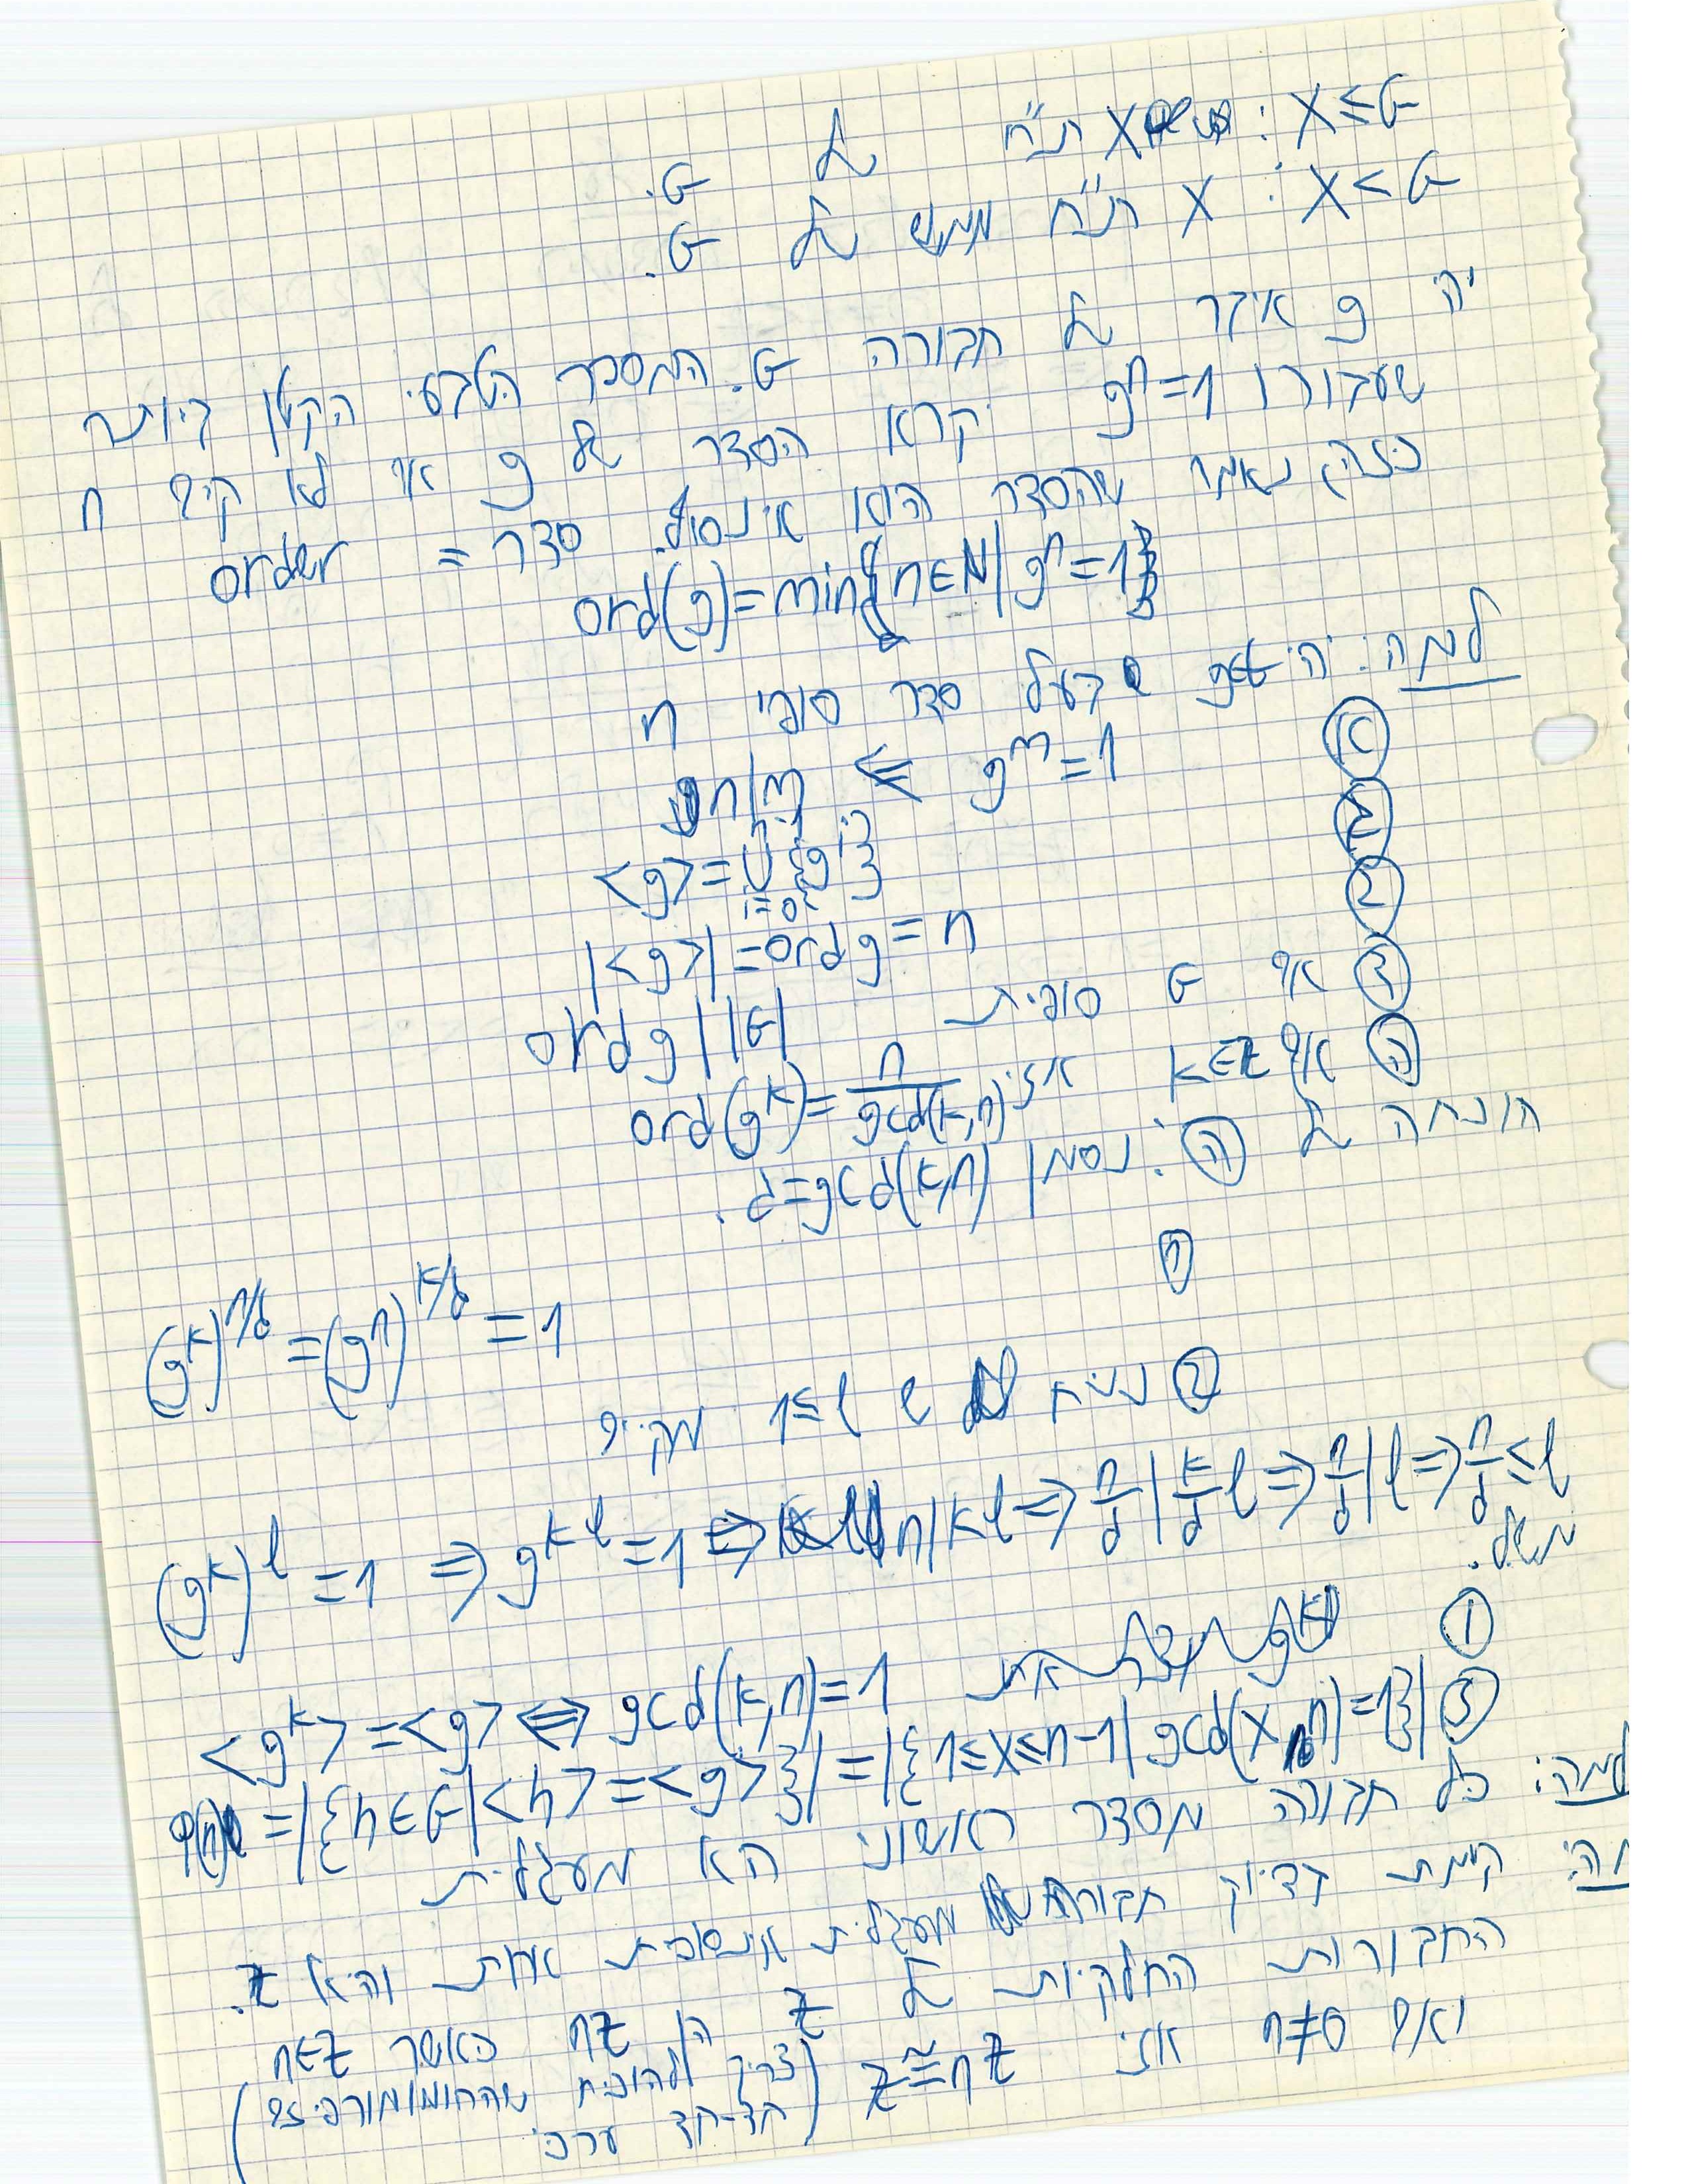 X≤G : X ת"ח של G.
X<G : X ת"ח ממש של G.
יהי g איבר של חבורה G. המספר הטבעי הקטן ביותר
שעבורו gⁿ=1 יקרא הסדר של g אם לא קיים n
כזה, נאמר שהסדר הוא אינסוף. סדר = order
ord(g)=min{n∈N| gⁿ=1}
למה: יהי g∈G בעל סדר סופי n
(א) gᵐ=1 ⇐ n|m
(ב) <g>=⋃ᵢ₌₀ⁿ⁻¹{gⁱ}
(ג) |<g>|=ord g=n
(ד) אם G סופית ord g | |G|
(ה) אם k∈Z אזי ord(gᵏ)=n/gcd(k,n)
הוכחה של (ה): נסמן d=gcd(k,n).
(1)
(gᵏ)^(n/d)=(gⁿ)^(k/d)=1
(2) נניח ש 1≤l מקיים
(gᵏ)ˡ=1 ⇒ gᵏˡ=1 ⇒ n|kl ⇒ n/d | k/d l ⇒ n/d | l ⇒ n/d ≤ l
משל.
(ו) <gᵏ>=<g> ⇔ gcd(k,n)=1
(ז) φ(n)=|{h∈G|<h>=<g>}|=|{1≤x≤n-1| gcd(x,n)=1}|
למה: כל חבורה מסדר ראשוני היא מעגלית
קיימת בדיוק חבורה מעגלית אינסופית אחת והיא Z.
החבורות החלקיות של Z הן nZ כאשר n∈Z
ואם n≠0 אזי Z≅nZ (צריך להוכיח שההומומורפיזם
חד-חד ערכי)